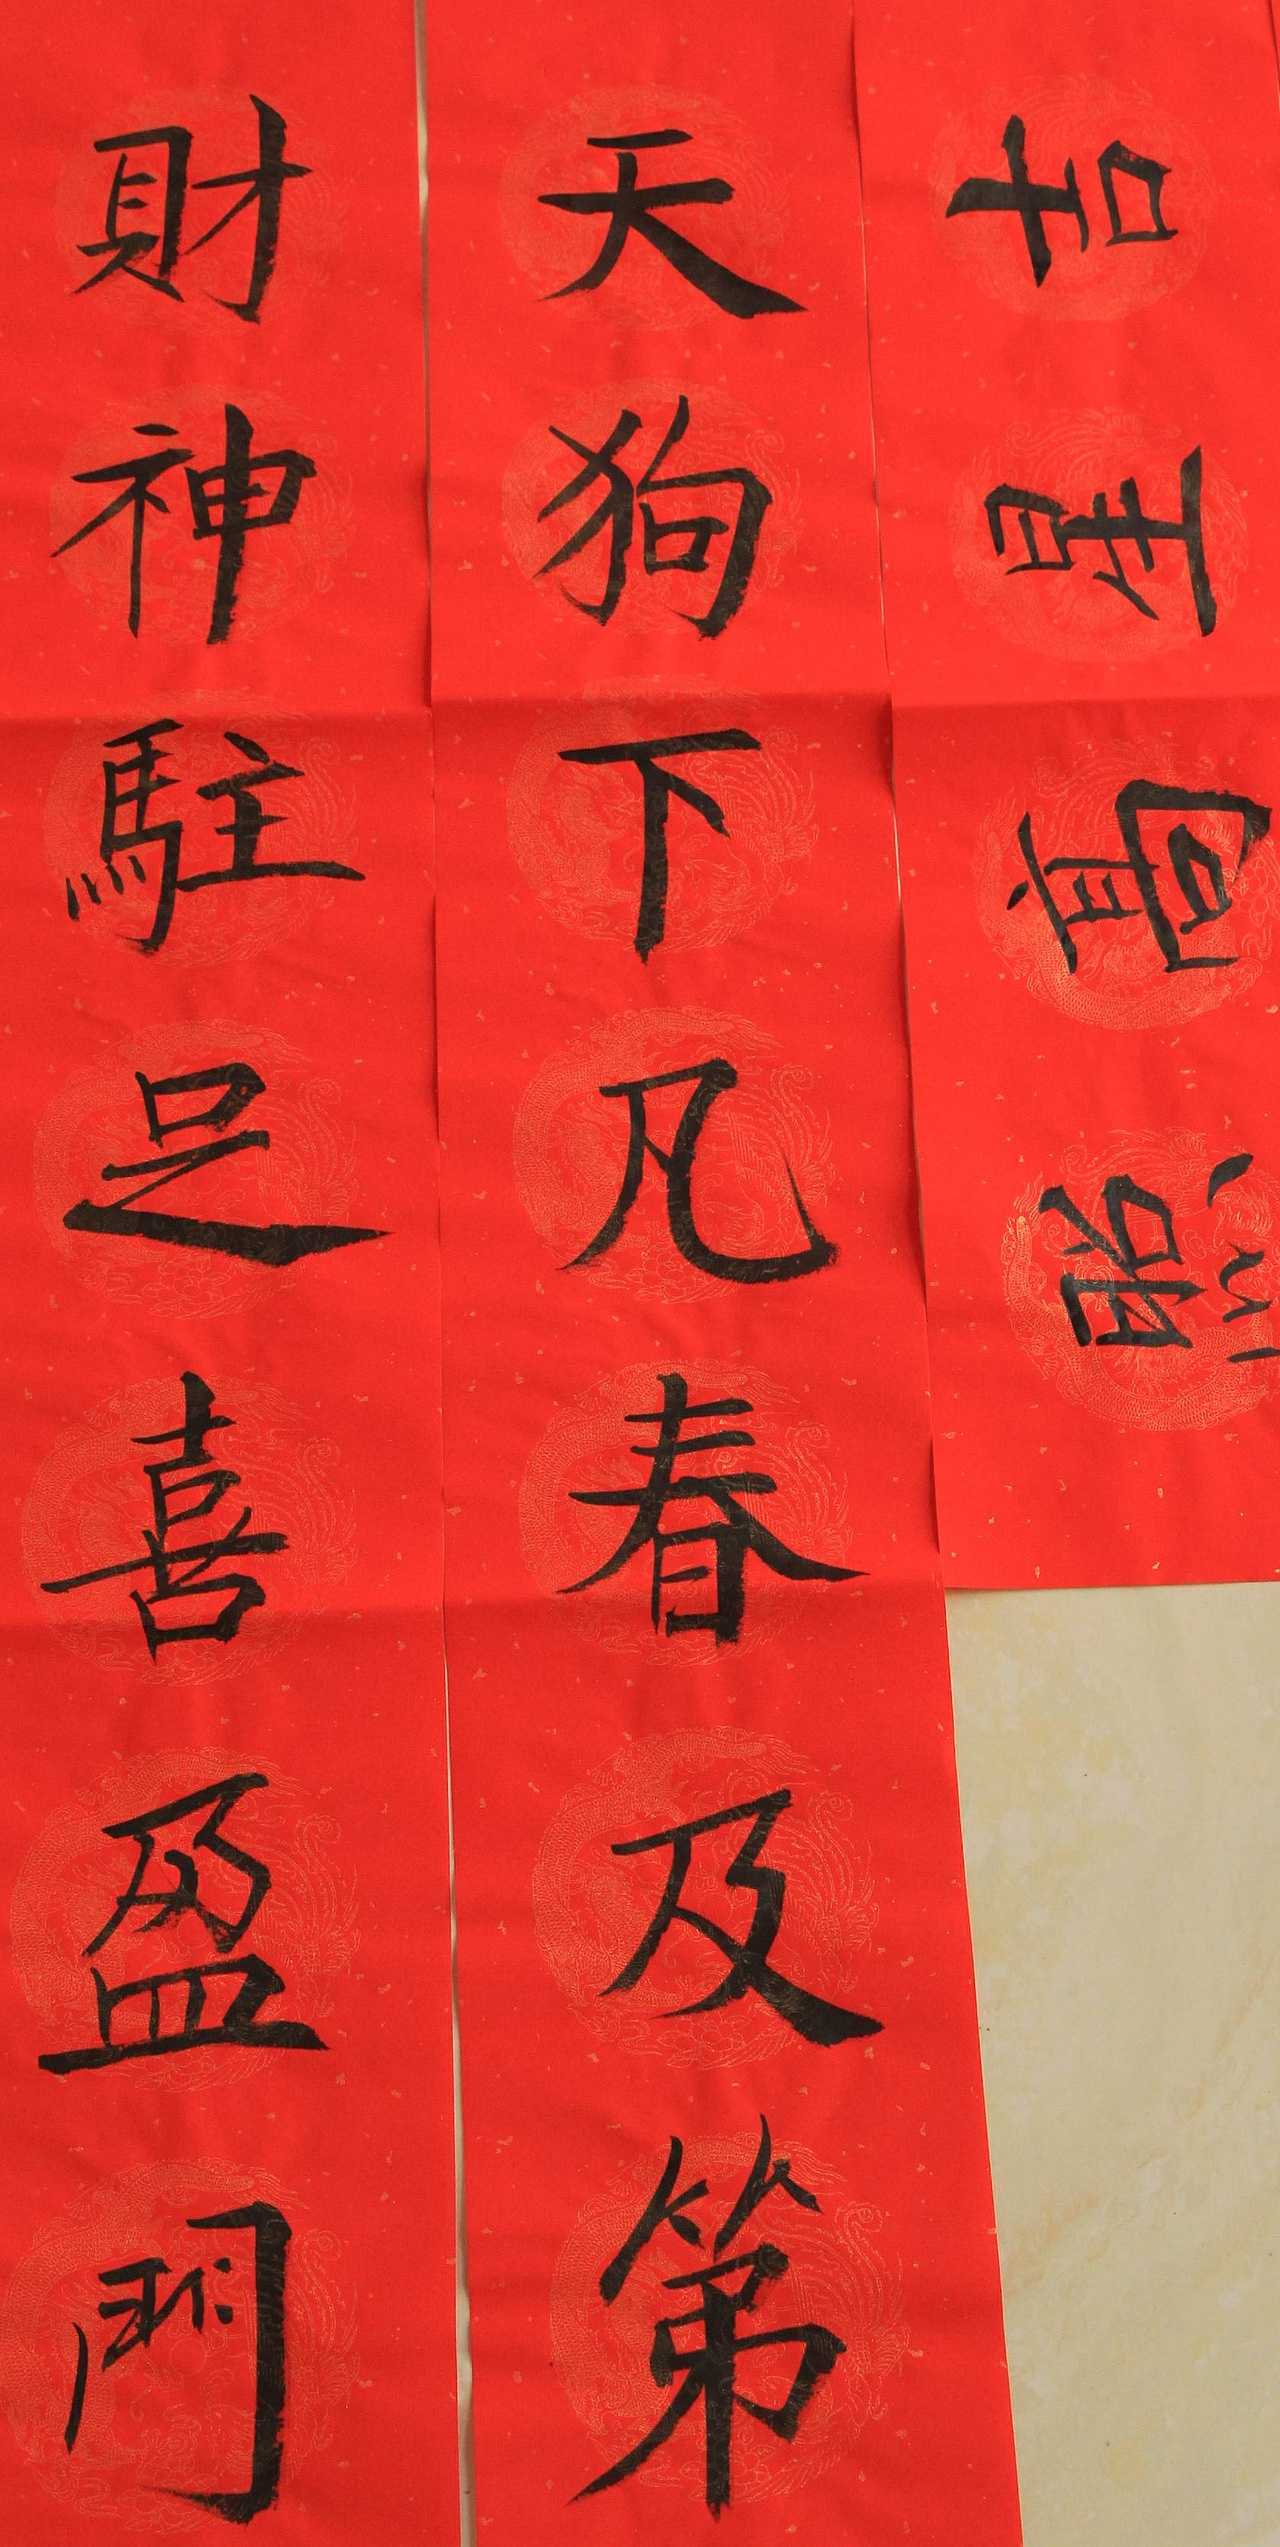 吉星高照
天狗下凡春及第
財神駐足喜盈門